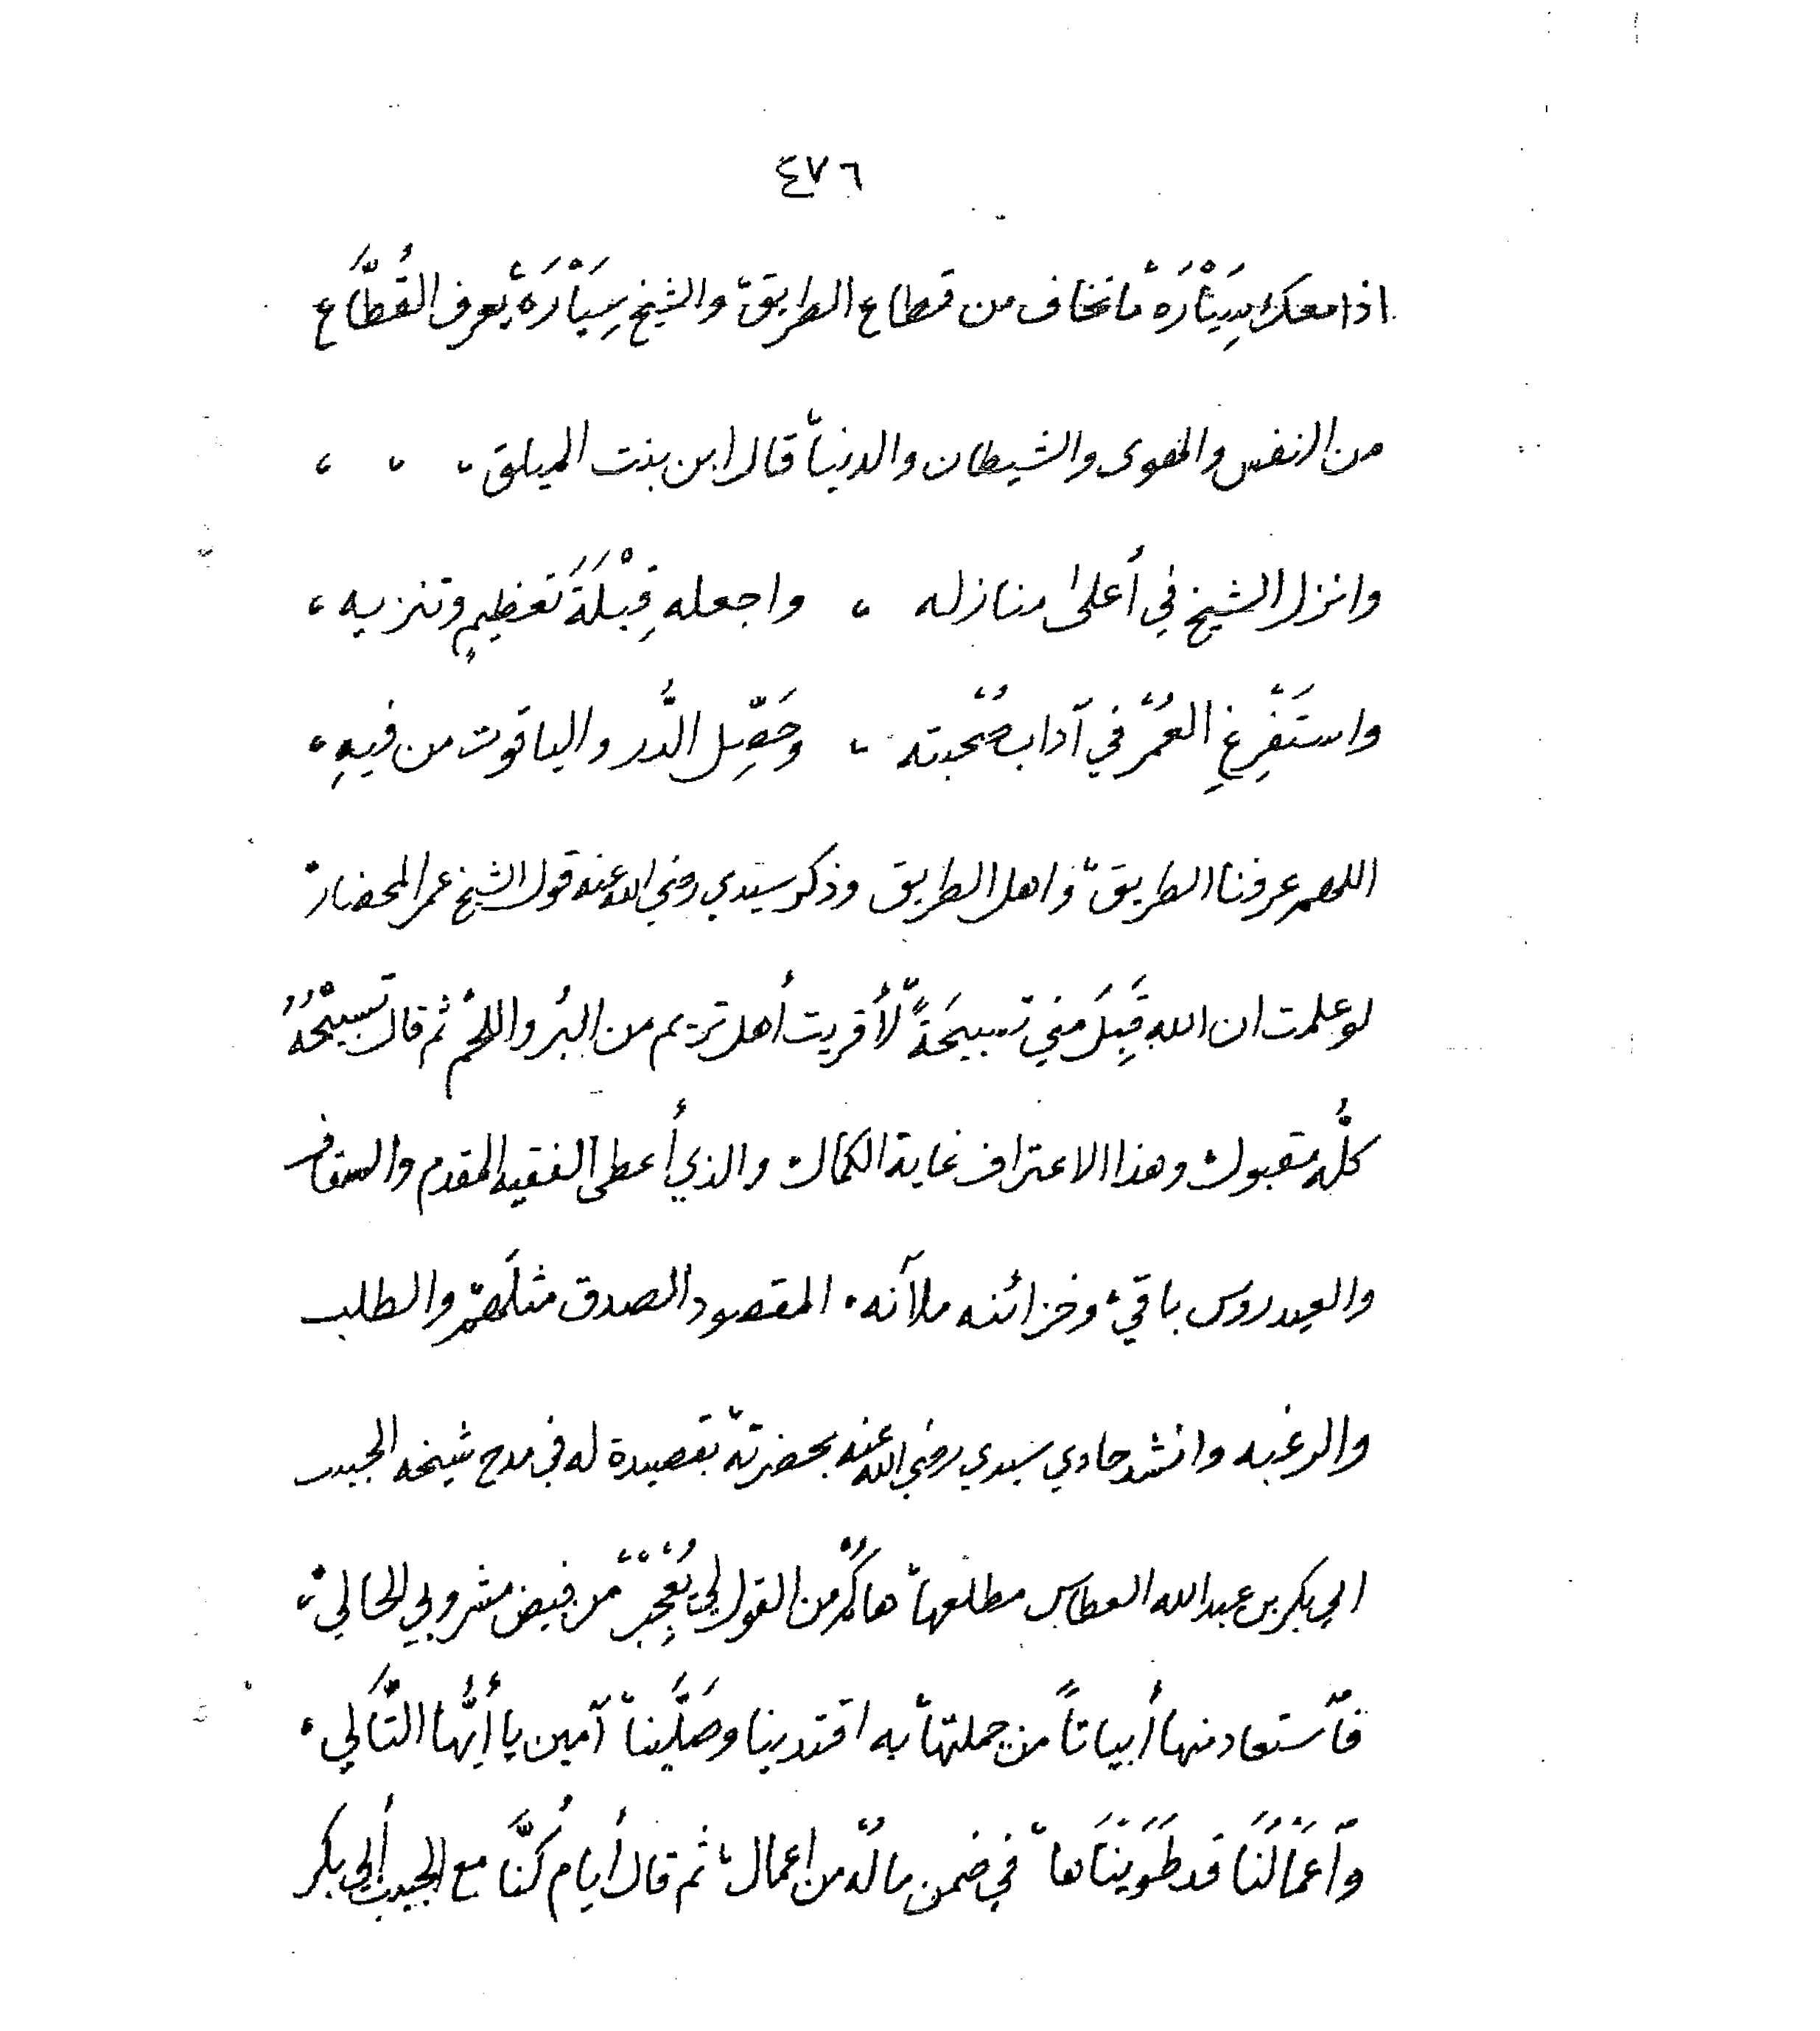 ٤٧٦
اذا معك سِيَّارَهْ ما تخاف من قطاع الطريق، والشيخ سِيَّارَهْ يعرف القُطَّاع
من النفس والهوى والشيطان والدنيا، قال ابن بنت الميلق،
وانزل الشيخ في أعلى منازله ، واجعله قِبْلَةَ تعظيمٍ وتنزيه ،
واستَفْرِغِ العُمْرَ في آداب صُحْبته ، وحَصِّل الدُّر والياقوت من فيهِ ،
اللهم عرفنا الطريق، واهل الطريق وذكر سيدي رضي الله عنه قول الشيخ عمر المحضار
لو علمت ان الله قَبِلَ مني تسبيحَةً لأَقريت أهل تريم من البُر واللحم، ثم قال تسبيحُهُ
كلُّه مقبول، وهذا الاعتراف غاية الكمال، والذي أعطى الفقيه المقدم والسقاف
والعيدروس باقي، وخزائنه ملآنه، المقصود الصدق مثلَهم، والطلب
والرغبه وانشد حادي سيدي رضي الله عنه بحضرته، بقصيدة له في مدح شيخه الحبيب
ابي بكر بن عبدالله العطاس مطلعها، هاكُم من القول لي يُعْجِبْ، من فيض مشروبي الحالي،
فاستعاد منها أبياتاً من جملتها، به اقتدينا وصَلَّينا، آمين يا أيُّها التَّالي،
وأعمَالُنَا قد طَوَيْنَاها، في ضمن ما لُه من اعمال، ثم قال أيام كُنَّا مع الحبيب أبي بكر